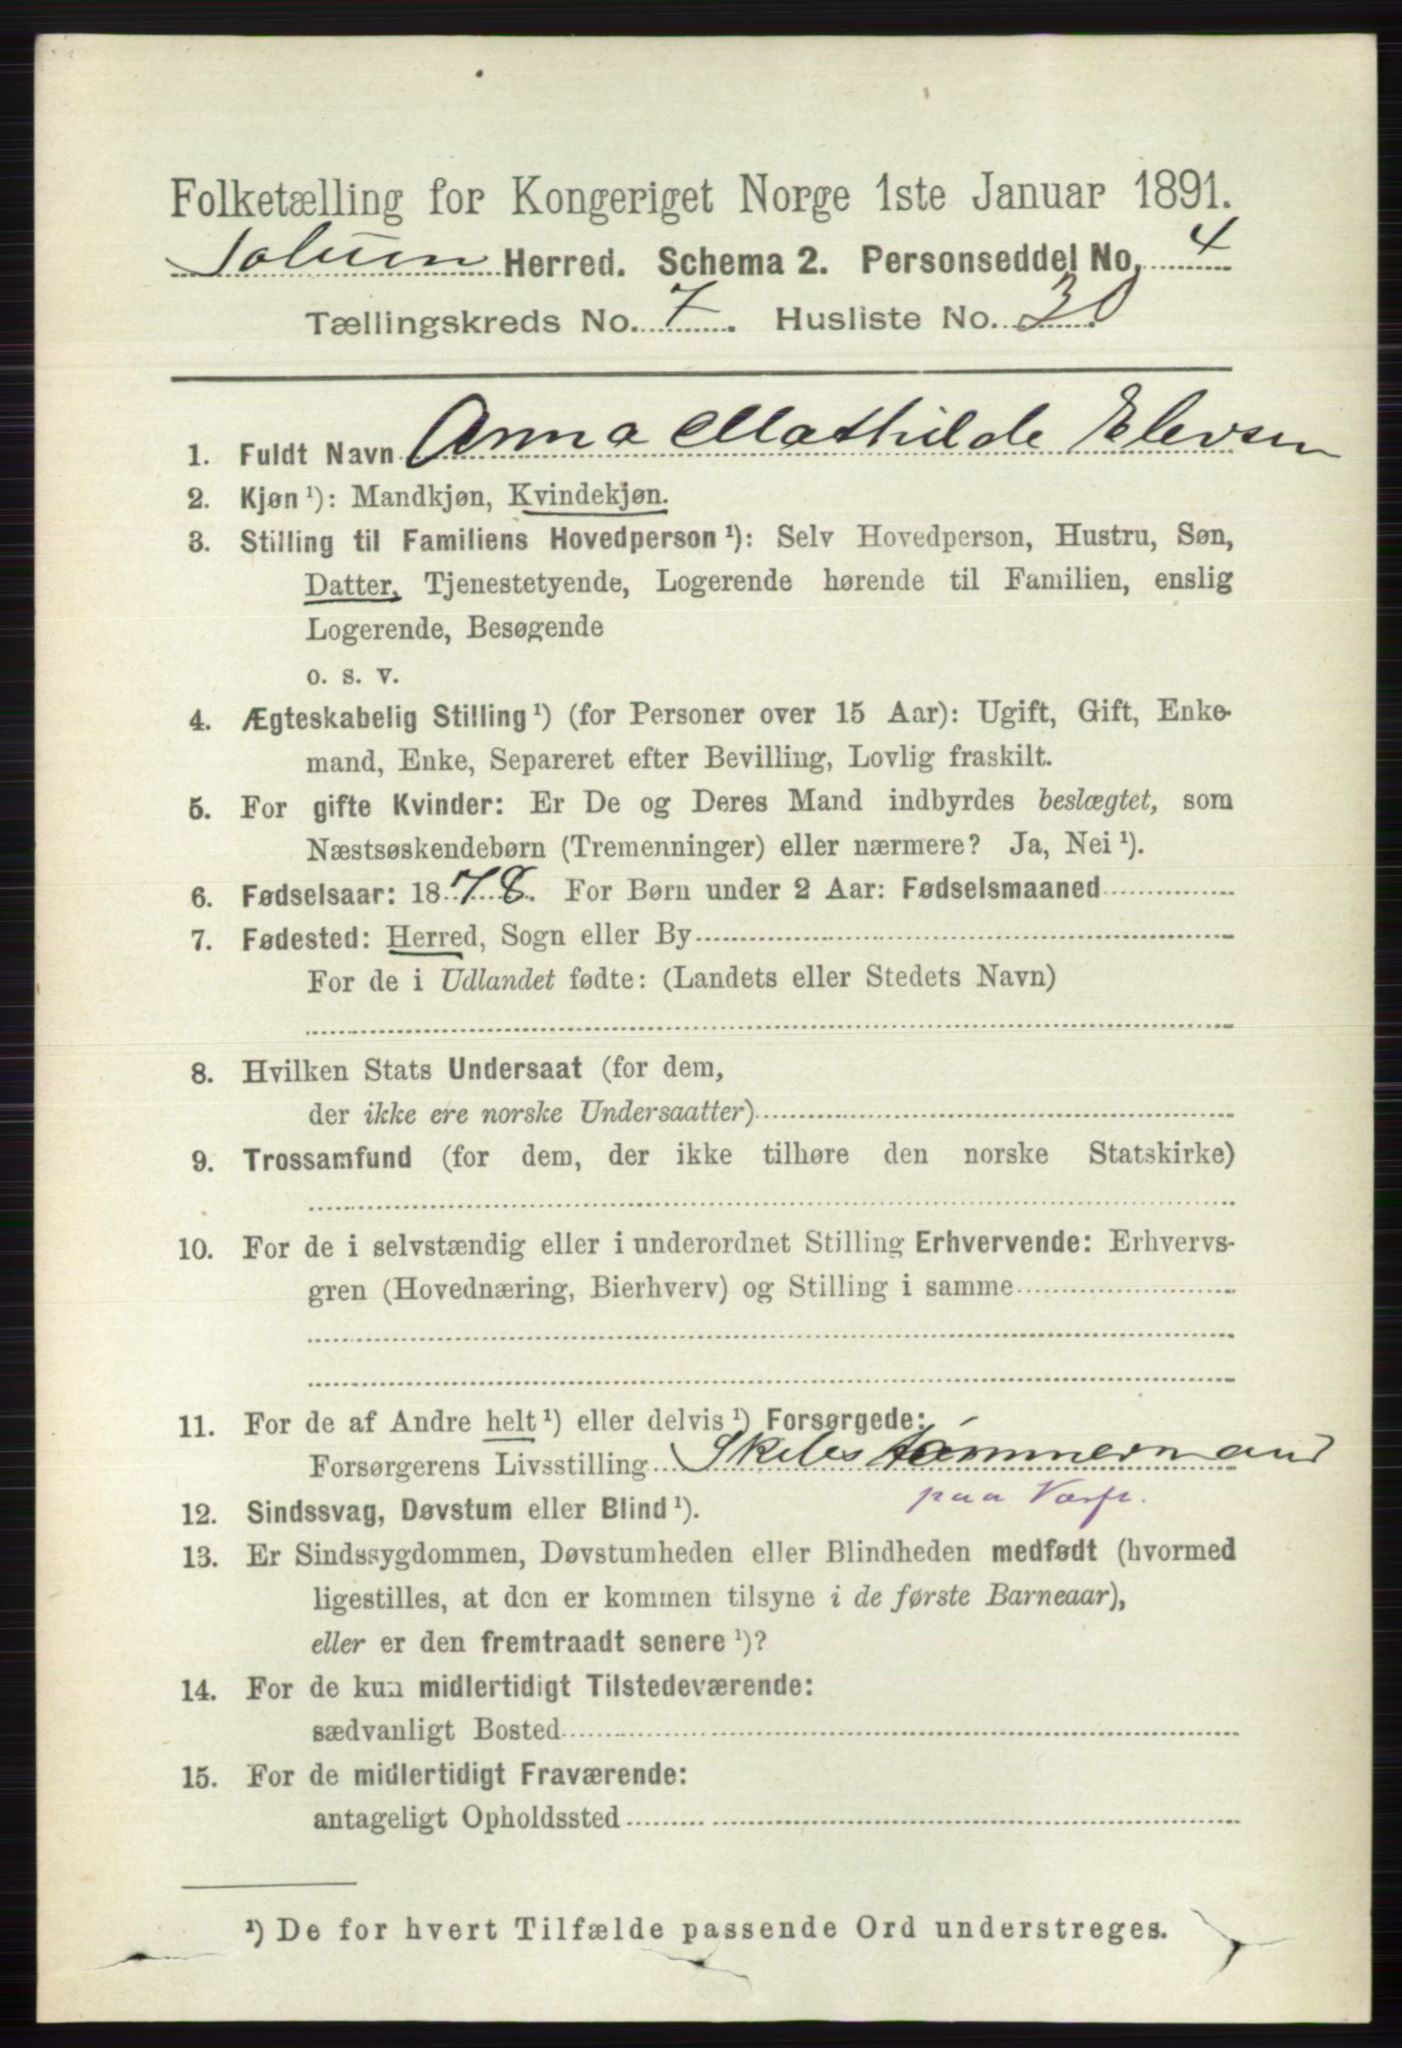 Folketælling for Kongeriget Norge 1ste Januar 1891.
Solum Herred. Schema 2. Personseddel No. 4
Tællingskreds No. 7. Husliste No. 30
1. Fuldt Navn Anna Mathilde Elevsen
2. Kjøn ¹): Mandkjøn, Kvindekjøn.
3. Stilling til Familiens Hovedperson ¹): Selv Hovedperson, Hustru, Søn,
Datter, Tjenestetyende, Logerende hørende til Familien, enslig
Logerende, Besøgende
o. s. v.
4. Ægteskabelig Stilling ¹) (for Personer over 15 Aar): Ugift, Gift, Enke-
mand, Enke, Separeret efter Bevilling, Lovlig fraskilt.
5. For gifte Kvinder: Er De og Deres Mand indbyrdes beslægtet, som
Næstsøskendebørn (Tremenninger) eller nærmere? Ja, Nei ¹).
6. Fødselsaar: 1878. For Børn under 2 Aar: Fødselsmaaned
7. Fødested: Herred, Sogn eller By
For de i Udlandet fødte: (Landets eller Stedets Navn)
8. Hvilken Stats Undersaat (for dem,
der ikke ere norske Undersaatter)
9. Trossamfund (for dem, der ikke tilhøre den norske Statskirke)
10. For de i selvstændig eller i underordnet Stilling Erhvervende: Erhvervs-
gren (Hovednæring, Bierhverv) og Stilling i samme
11. For de af Andre helt ¹) eller delvis ¹) Forsørgede:
Forsørgerens Livsstilling Skibstømmermand
paa Værft.
12. Sindssvag, Døvstum eller Blind ¹).
13. Er Sindssygdommen, Døvstumheden eller Blindheden medfødt (hvormed
ligestilles, at den er kommen tilsyne i de første Barneaar),
eller er den fremtraadt senere ¹)?
14. For de kun midlertidigt Tilstedeværende:
sædvanligt Bosted
15. For de midlertidigt Fraværende:
antageligt Opholdssted
¹) De for hvert Tilfælde passende Ord understreges.